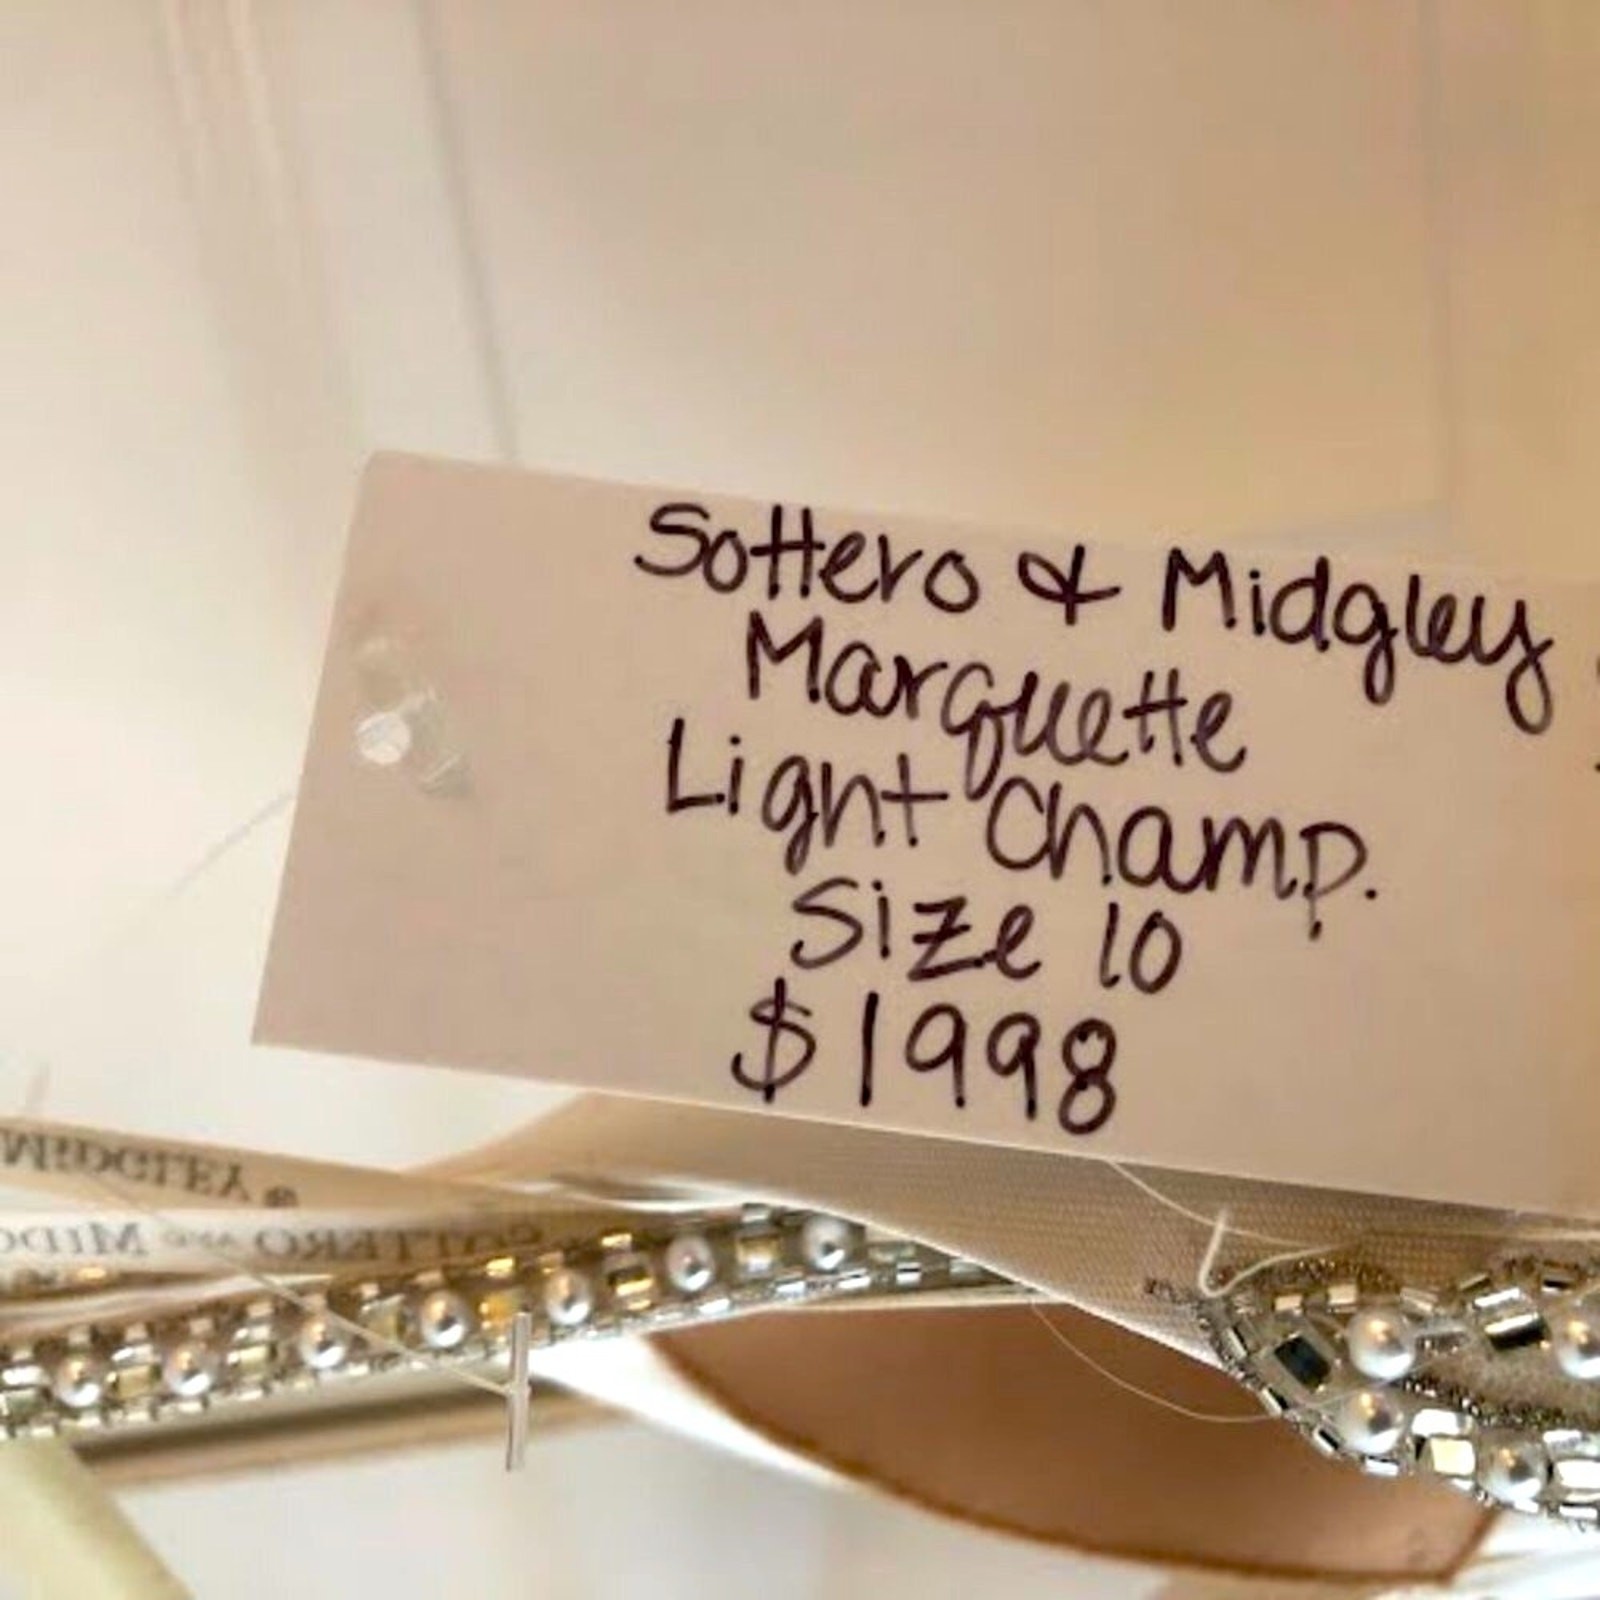 Sottero & Midgley
Marquette
Light Champ.
Size 10
$1998
MIDGLEY ®
SOTTERO AND MIDG